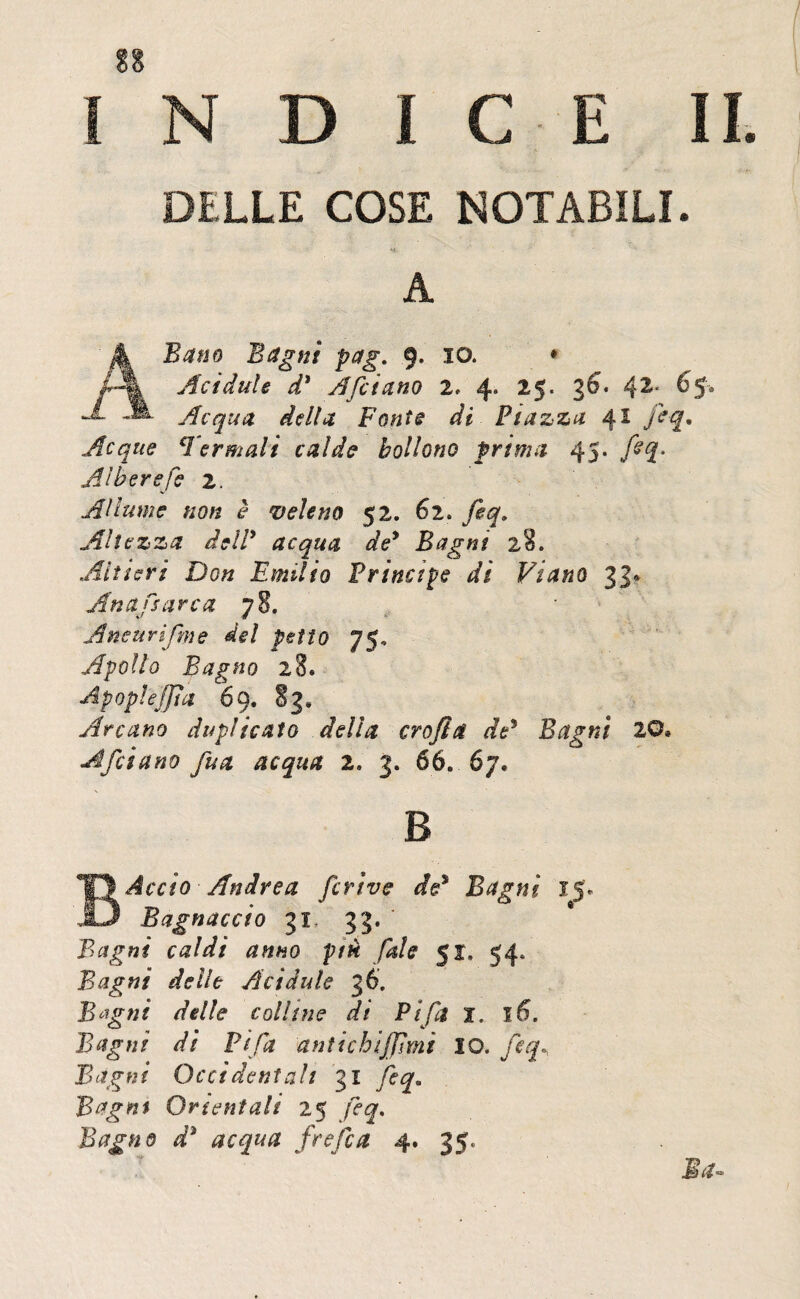 88
INDICE II.
DELLE COSE NOTABILI.
A
ABano Bagni pag. 9. 10.
Acidule d' Aſciano 2. 4. 25. 36. 42. 65.
Acqua della Fonte di Piazza 41 ſeq.
Acque Termali calde bollono prima 45. ſeq.
Albereſe 2.
Allume non è veleno 52. 62. ſeq.
Altezza dell' acqua de' Bagni 28.
Altieri Don Emilio Principe di Viano 33.
Anaſsarca 78.
Aneuriſme del petto 75.
Apollo Bagno 28.
Apopleſſia 69. 83.
Arcano duplicato della croſta de' Bagni 20.
Aſciano ſua acqua 2. 3. 66. 67.
B
BAccio Andrea ſcrive de' Bagni 15.
Bagnaccio 31. 33.
Bagni caldi anno più ſale 51. 54.
Bagni delle Acidule 36.
Bagni delle colline di Piſa 1. 16.
Bagni di Piſa antichiſſimi 10. ſeq.
Bagni Occidentali 31 ſeq.
Bagni Orientali 25 ſeq.
Bagno d' acqua freſca 4. 35.
Ba-